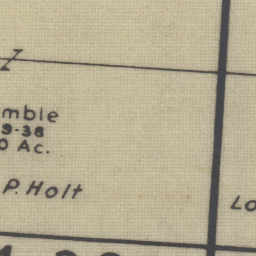 mble
9-38
0 Ac.
P. Holt
Lo